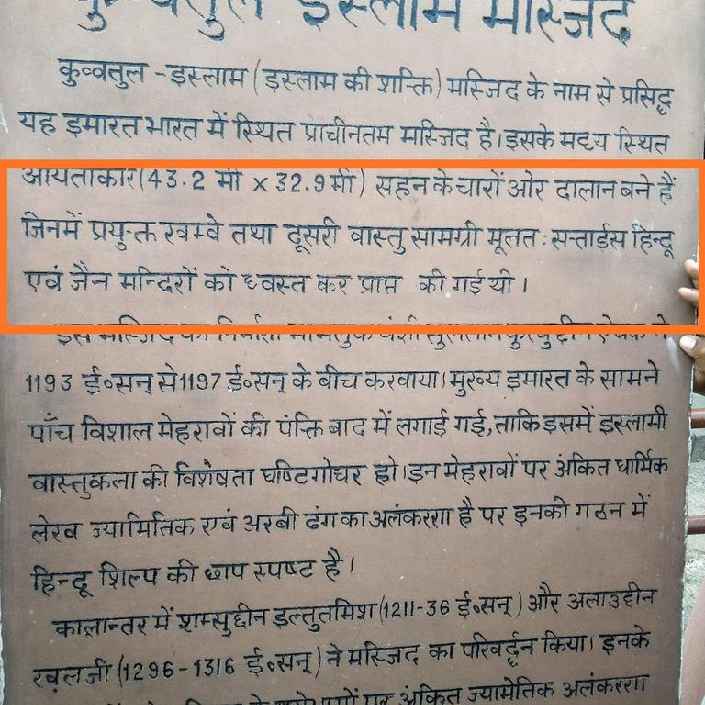 कुव्वतुल इस्लाम मस्जिद
कुव्वतुल - इस्लाम (इस्लाम की शक्ति) मस्जिद के नाम से प्रसिद्ध
यह इमारत भारत में स्थित प्राचीनतम मस्जिद है। इसके मद्दय स्थित
आयताकार (43.2 मी x 32.9 मी) सहन के चारों ओर दालान बने हैं
जिनमें प्रयुक्त खम्वे तथा दूसरी वास्तु सामग्री मूलत: सत्ताईस हिन्दू
एवं जैन मन्दिरों को ध्वस्त कर प्राप्त की गई थी।
इस मस्जिद का निर्माण
1193 ई॰सन् से 1197 ई॰सन् के बीच करवाया। मुख्य इमारत के सामने
पाँच विशाल मेहरावों की पंक्ति बाद में लगाई गई, ताकि इसमें इस्लामी
वास्तुकला की विशेषता घष्टिगोचर हो। इन मेहरावों पर अंकित धार्मिक
लेख ज्यामितिक एवं अरबी ढंग का अलंकरण है पर इनकी गठन में
हिन्दू शिल्प की छाप स्पषट है।
कालान्तर में शम्सुद्दीन इल्तुतमिश (1211-36 ई॰सन्) और अलाउद्दीन
खलजी (1296-1316 ई॰सन्) ने मस्जिद का परिवर्द्दन किया। इनके
अंकित ज्यामेतिक अलंकरण